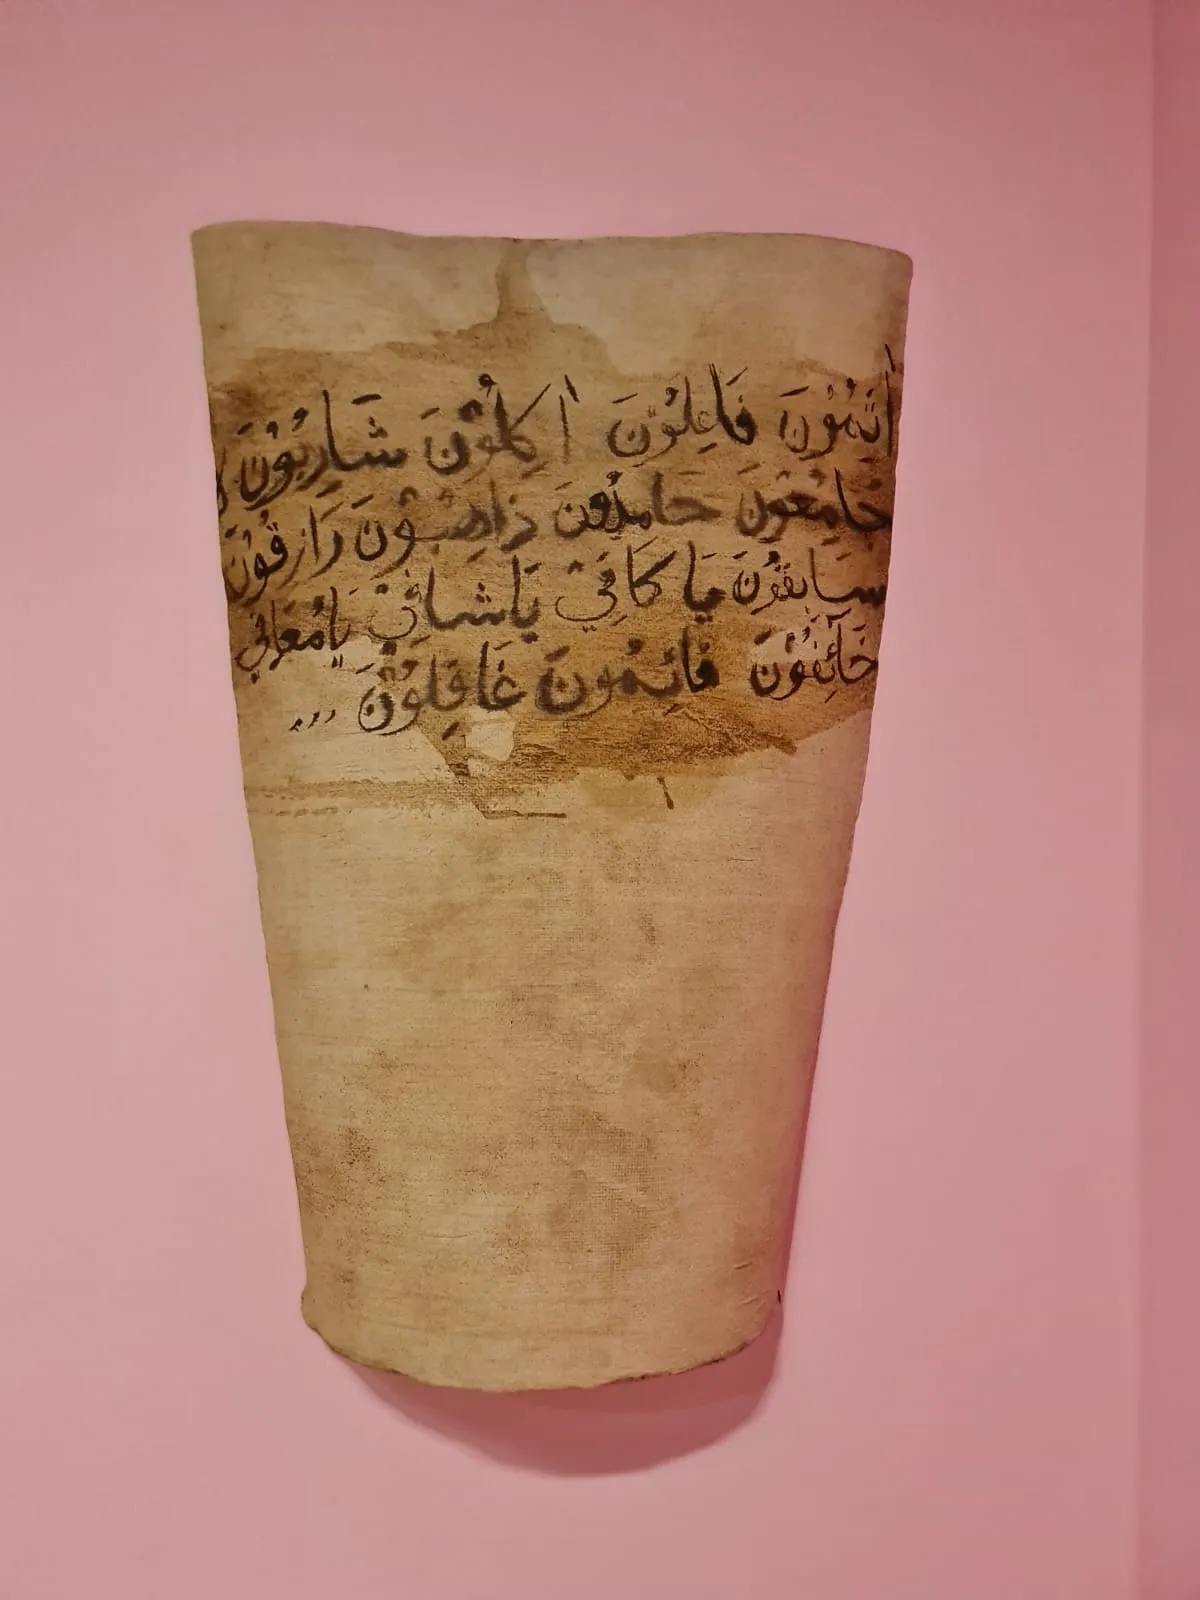 اَثِمُوْنَ فَاعِلُوْنَ اٰكِلُوْنَ شَارِبُوْنَ
جَامِعُوْنَ حَامِدُوْنَ ذَاهِبُوْنَ رَازِقُوْنَ
سَابِقُوْنَ يَا كَافِيْ يَاشَافِيْ يَامُعَافِيْ
خَآئِفُوْنَ قَائِمُوْنَ غَافِلُوْنَ ...